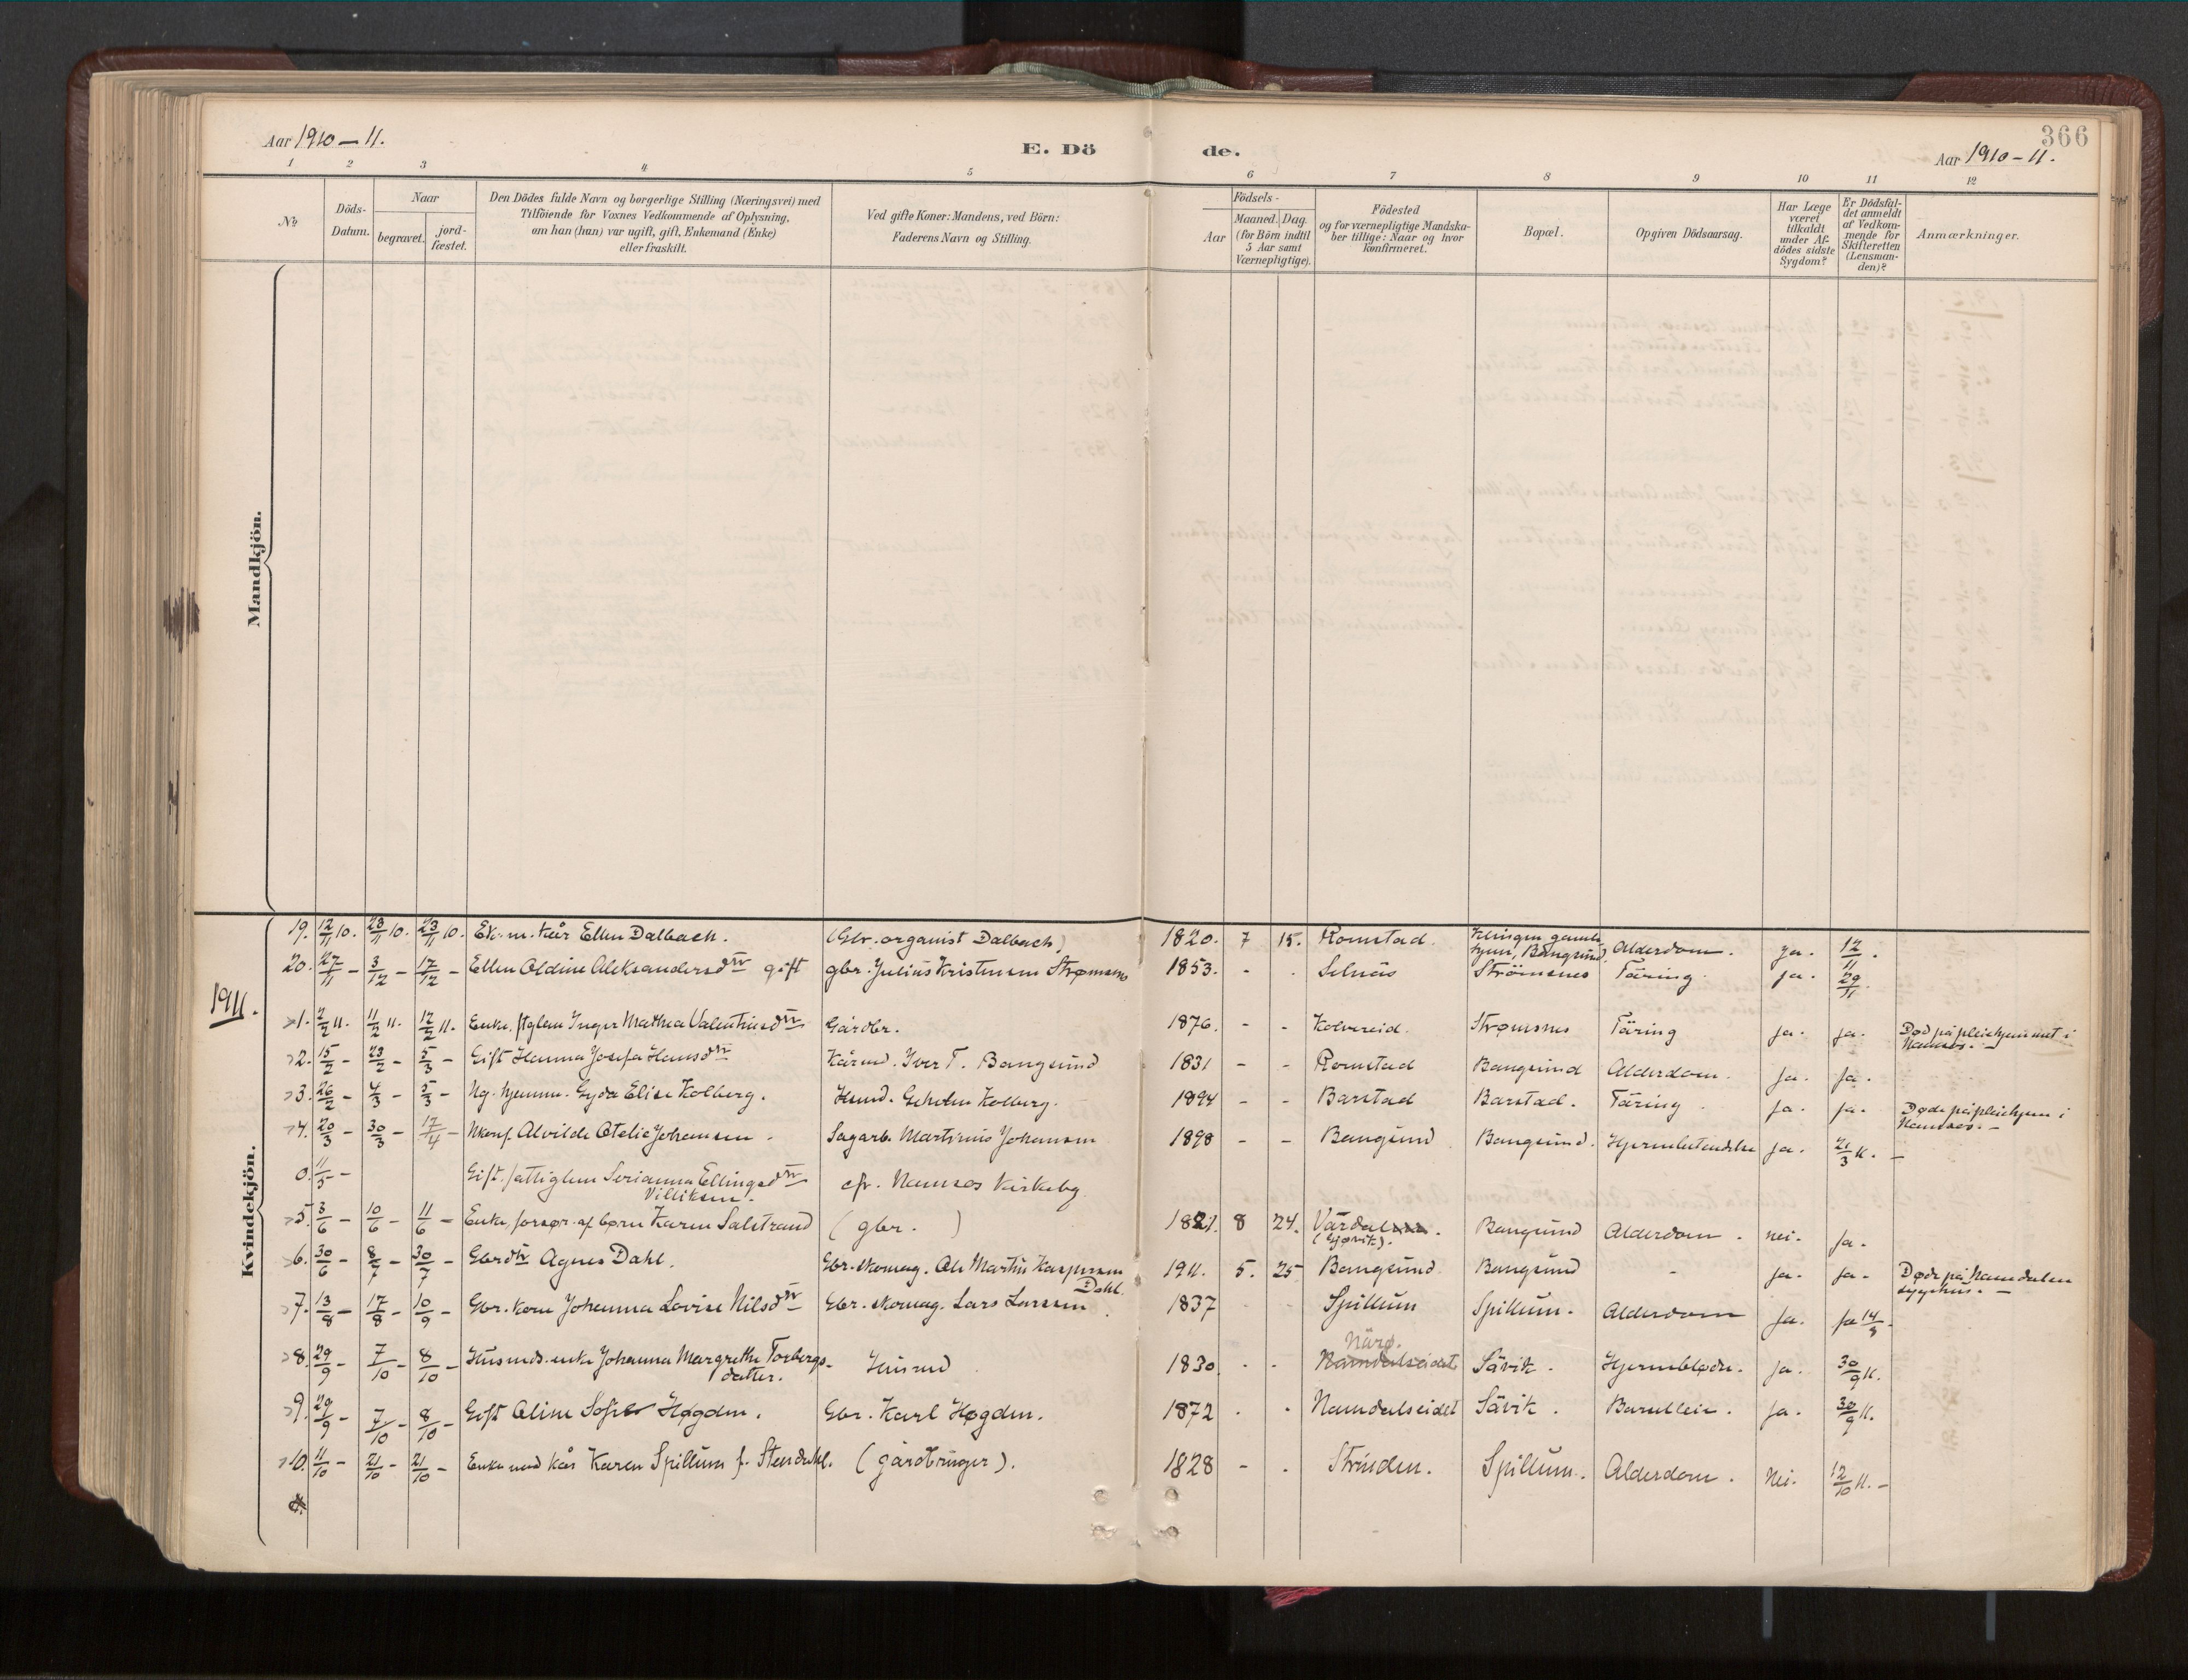 366
Aar 1910 – 11.
E. Dö
de.
Aar 1910 – 11.
1 2 3 4 5 6 7 8 9 10 11 12
№
Döds-
Datum.
Naar
begravet.
jord-
fæstet.
Den Dödes fulde Navn og borgerlige Stilling (Næringsvei) med
Tilföiende for Voxnes Vedkommende af Oplysning,
om han (hun) var ugift, gift, Enkemand (Enke)
eller fraskilt.
Ved gifte Koner: Mandens, ved Börn:
Faderens Navn og Stilling.
Födsels-
Aar
Maaned. Dag.
(for Börn indtil
5 Aar samt
Værnepligtige).
Födested
og for værnepligtige Mandska-
ber tillige: Naar og hvor
konfirmeret.
Bopæl.
Opgiven Dödsaarsag.
Har Læge
været
tilkaldt
under Af-
dödes sidste
Sygdom?
Er Dödsfal-
det anmeldt
af Vedkom-
mende for
Skifteretten
(Lensman-
den)?
Anmærkninger.
Mandkjön.
Kvindekjön.
19. 12/11 10. 23/11 10. 23/11 10. Ek. m. kår Ellen Dalbach. (Gbr. organist Dalbach) 1820. 7 15. Romstad. Klingen gamle- hjem, Bangsund. Alderdom. ja. 12/11.
20. 27/11 – 3/12 – 17/12 – Ellen Aldine Aleksandersdtr gift gbr. Julius Kristensen Strømsnes 1853. - . Selnäs Strömsnes Täring. ja. 29/11.
1911.
1. 2/2 11. 11/2 11. 12/2 11. Enke. ftglem Inger Mathea Valentinsdtr Gårdbr. 1876. - - Kolvereid. Strømsnes Täring ja. ja. Død på pleiehjemmet i
Namsos. –
2. 15/2 – 23/2 – 5/3 – Gift Hanna Josefa Hansdtr Kårmd. Iver T. Bangsund 1831 - - Romstad Bangsund Alderdom. ja. ja.
3. 26/2 – 4/3 – 5/3 – Ug. hjemmev. Gyda Elise Kolberg. Husmd. Kolberg. 1894 - - Barstad Barstad. Täring. ja. ja. Døde på pleiehjem i
Namsos. –
4. 20/3 – 30/3 – 17/4 – Ukonf. Alvilde Otelie Johansen. Sagarb. Martinus Johansen 1898 - - Bangsund Bangsund. Hjernebetændelse ja. 21/3 11. –
0. 11/5 – Gift. fattiglem Serianna Ellingsdtr
Villiksen. cfr. Namsos kirkebog
5. 3/6 – 10/6 – 11/6 – Enke, forsør. af børn Karen Salstrand (gbr. ) 1821. 8 24. Värdalen.
(Gjørvik). Bangsund Alderdom. nei. ja.
6. 30/6 – 8/7 – 30/7 – Gbrdtr Agnes Dahl. Gbr. skomag. Ole Martin Kaspersen
Dahl. 1911. 5. 25 Bangsund Bangsund - ja. ja. Døde på Namdalen
sygehus. –
7. 13/8 – 17/8 – 10/9 – Gbr. kone Johanna Lovise Nilsdtr Gbr. skomag. Lars Larssen 1837 Spillum Spillum. Alderdom ja. ja 14/9.
8. 29/9 – 7/10 – 8/10 – Husmds. enke Johanna Margrethe Torbergs-
datter. Husmd 1830. - - Närø.
Namdalseidet Sävik. Hjerneblødn. ja. 30/9 11.
9. 29/9 – 7/10 – 8/10 – Gift Oline Sofie Høgden. Gbr. Karl Høgden. 1872 . . Namdalseidet Sävik. Barselleie. ja. 30/9 11.
10. 11/10 – 21/10 – 21/10 – Enke med kår Karen Spillum f. Stendahl. (gårdbruger). 1828 - . Strinden. Spillum. Alderdom. Nei. 12/10 11. –